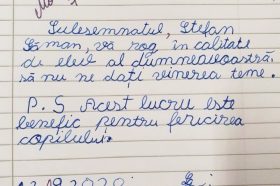 Subsemnatul, Ștefan
Șiman, vă rog, în calitate
de elev al dumneavoastră,
să nu ne dați vinerea teme.
P.S Acest lucru este
benefic pentru fericirea
copilului.